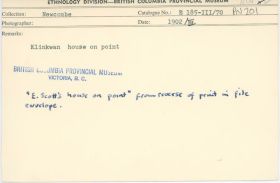 ETHNOLOGY DIVISION—BRITISH COLUMBIA PROVINCIAL MUSEUM
Collector: Newcombe Catalogue No.: E 185-III/70 PN 701
Photographer: Date: 1902/III
Remarks:
Klinkwan house on point
BRITISH COLUMBIA PROVINCIAL MUSEUM
VICTORIA, B. C.
"E. Scott's house on point" from reverse of print in file
envelope.